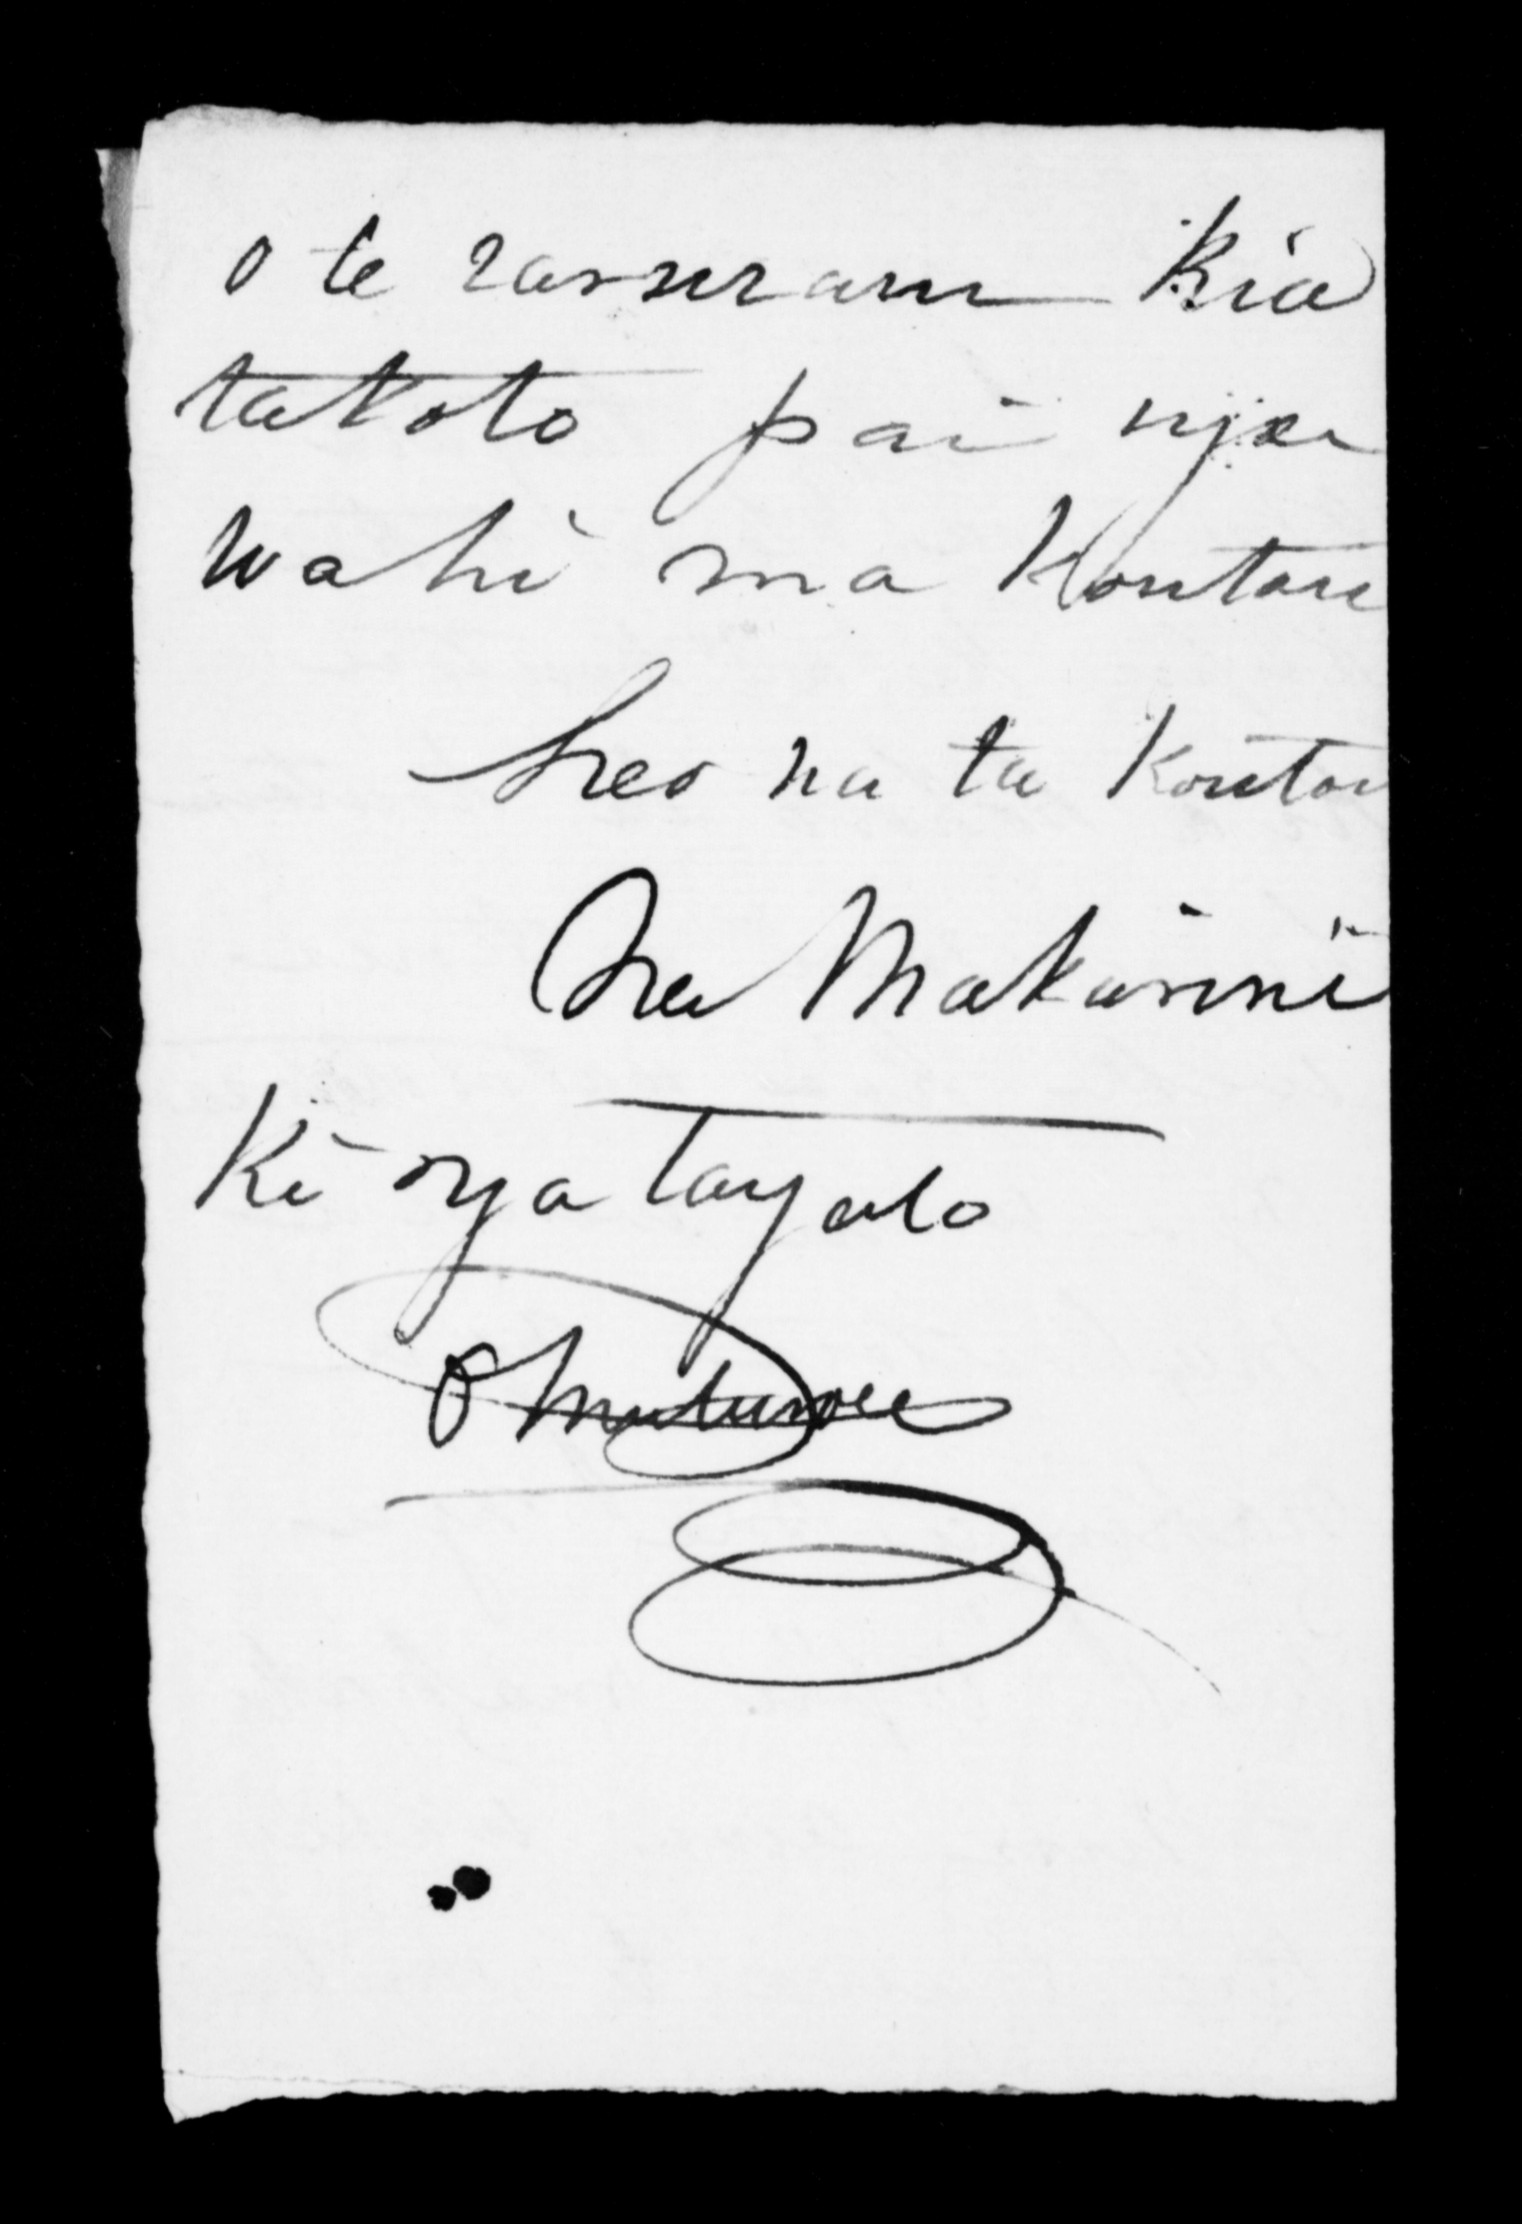 o te raruraru kia
takoto pai nga
wahi ma Koutou
heo na ta Koutou
Na Makarini
Ki nga Tangata
O Maturoa